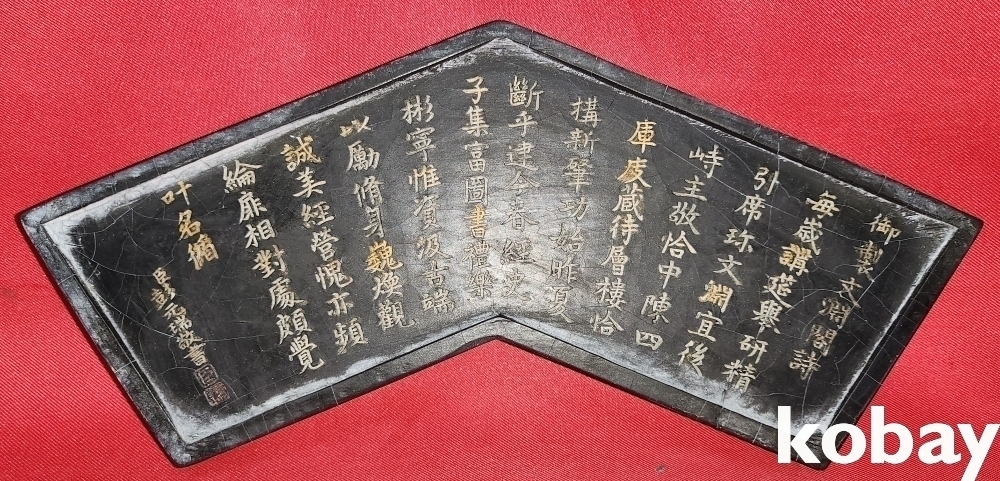 御製文淵閣詩
每歲講筵舉研精
引席珍文淵宜後
峙主敬恰中陳四
庫庋藏待層樓恰
構新肇功始昨夏
斷乎逮今春經史
子集富圖書禮樂
彬寧惟資汲古端
以勵脩身巍煥觀
誠美經營愧亦頻
綸扉相對處頗覺
叶名循
臣彭元瑞敬書
kobay